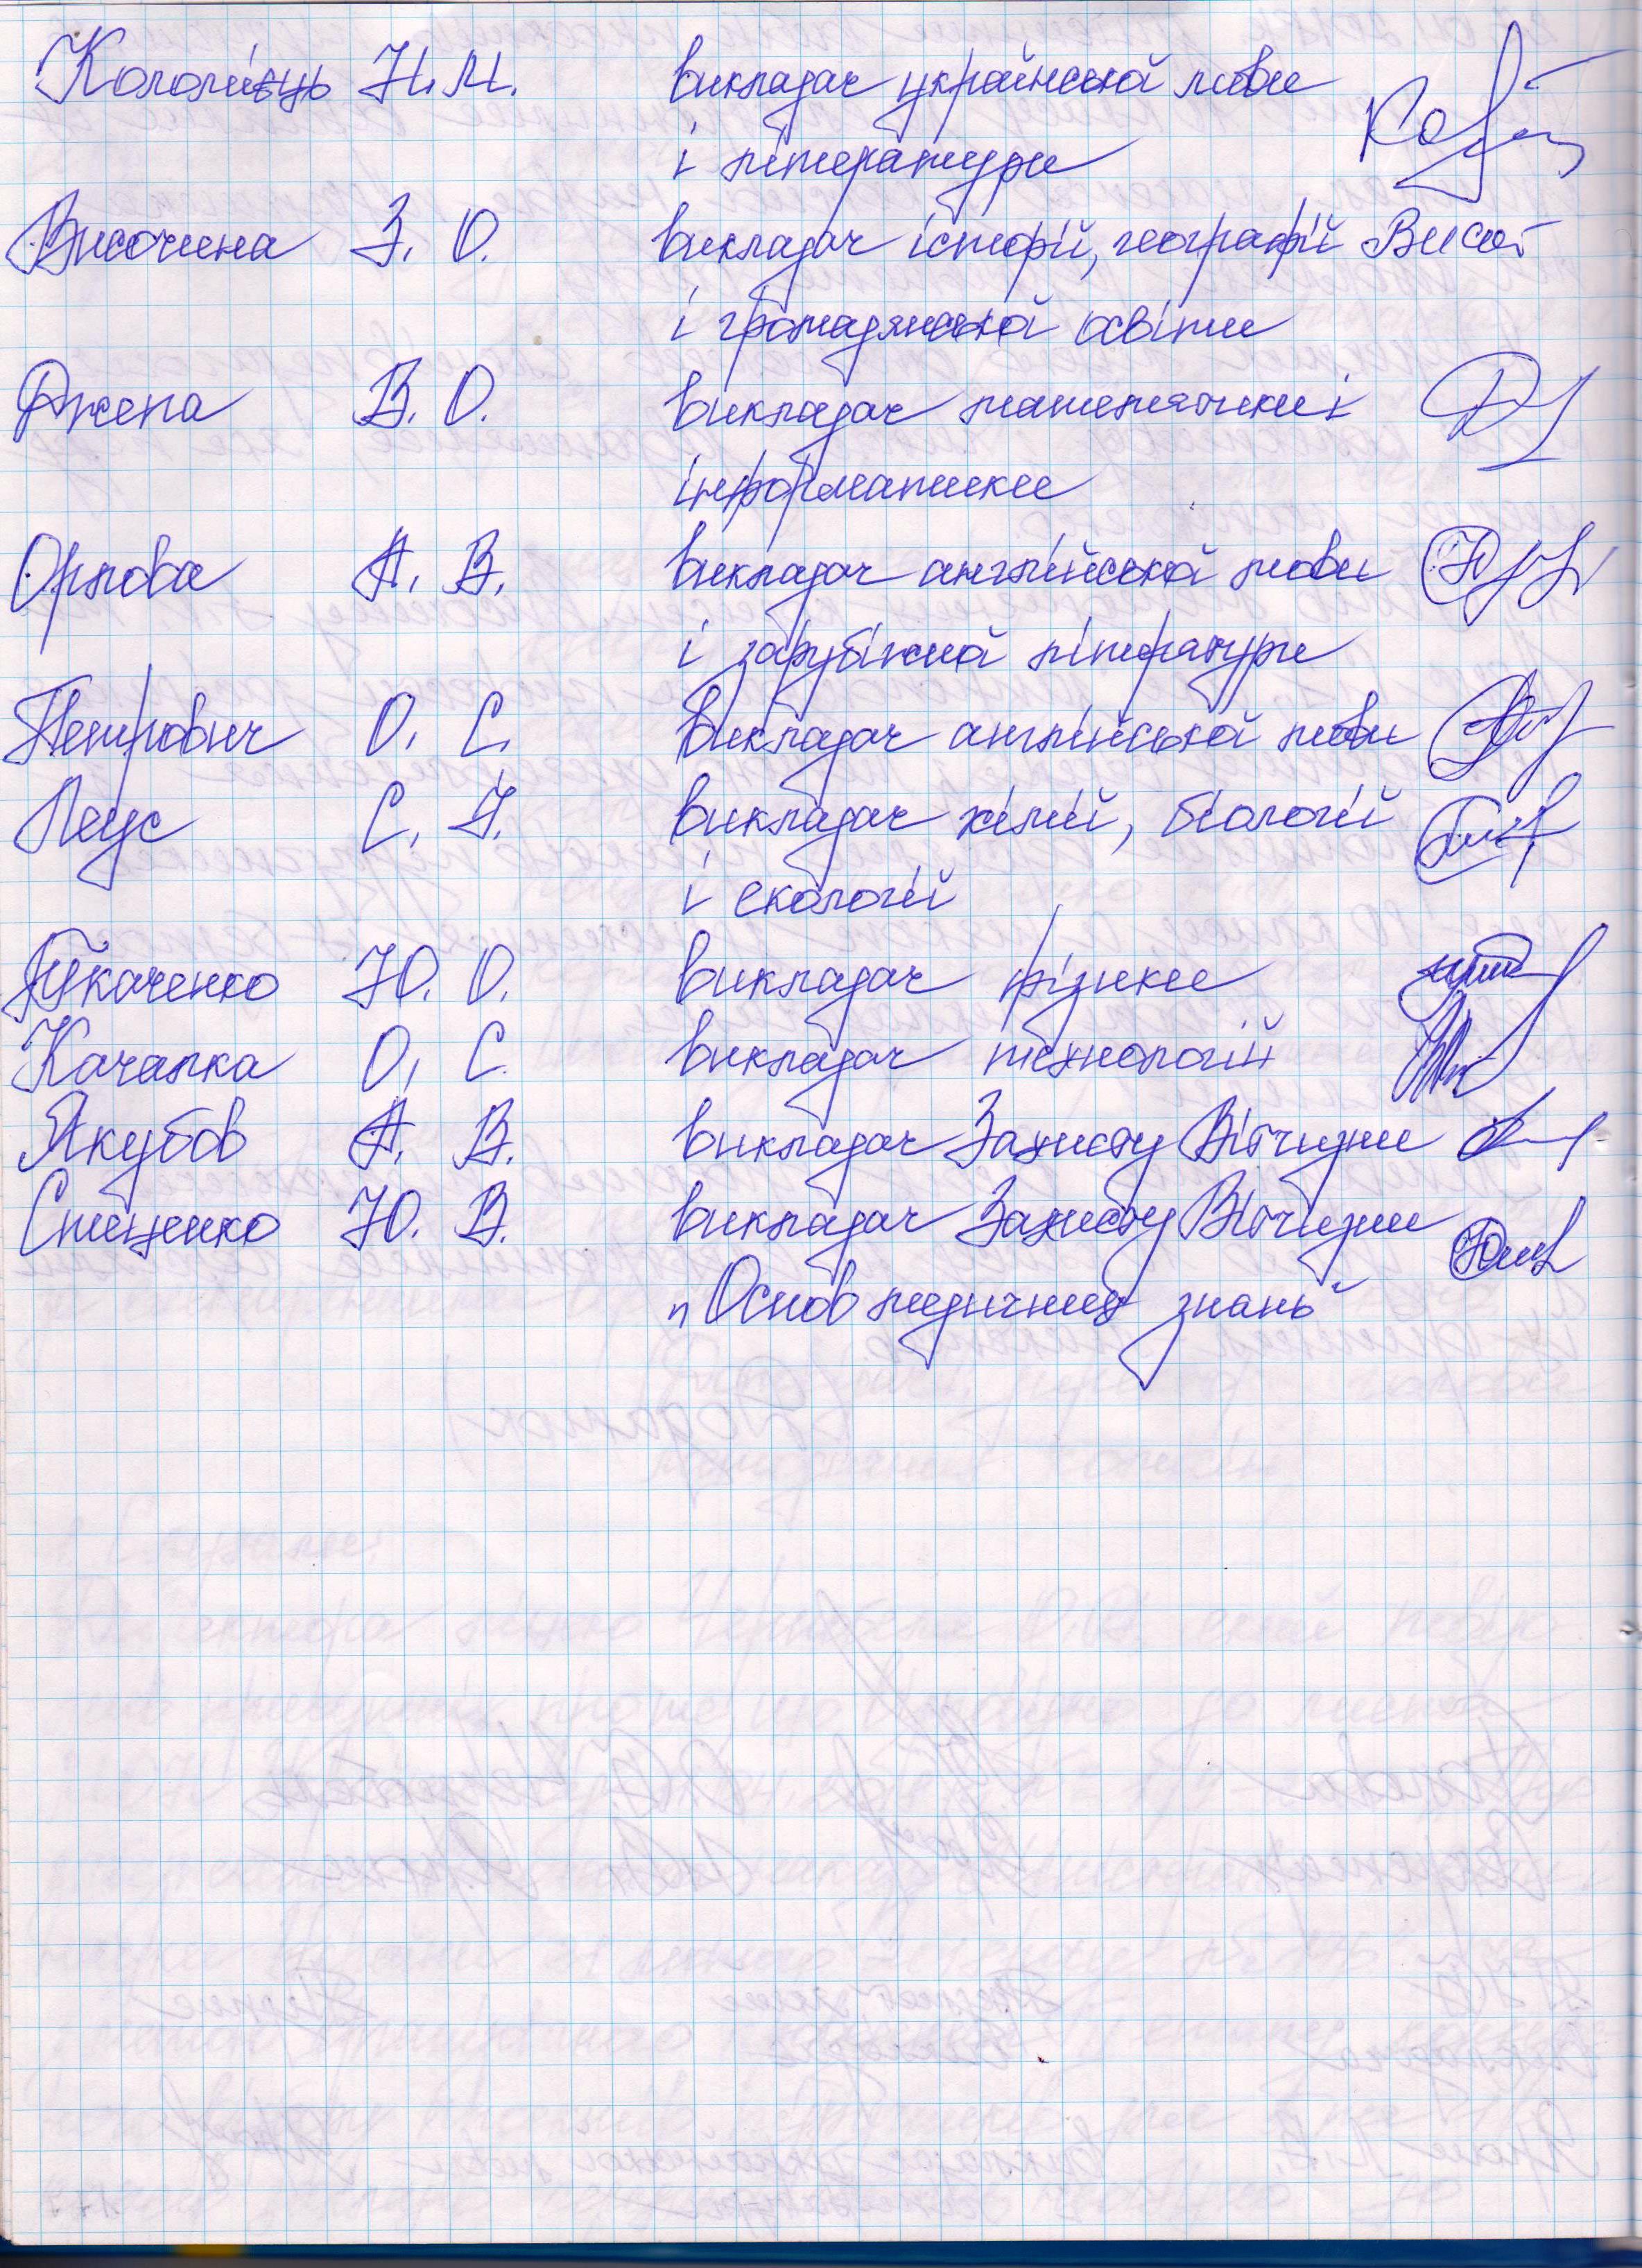 Коломієць Н.М. викладач української мови
і літератури
Височина З. О. викладач історії, географії
і громадянської освіти
Джепа В. О. викладач математики і
інформатики
Орлова А. В. викладач англійської мови
і зарубіжної літератури
Петрович О. С. викладач англійської мови
Пеус С. І. викладач хімії, біології
і екології
Ткаченко Ю. О. викладач фізики
Качалка О. С. викладач технологій
Якубов А. В. викладач Захисту Вітчизни
Стещенко Ю. В. викладач Захисту Вітчизни
„Основ медичних знань"